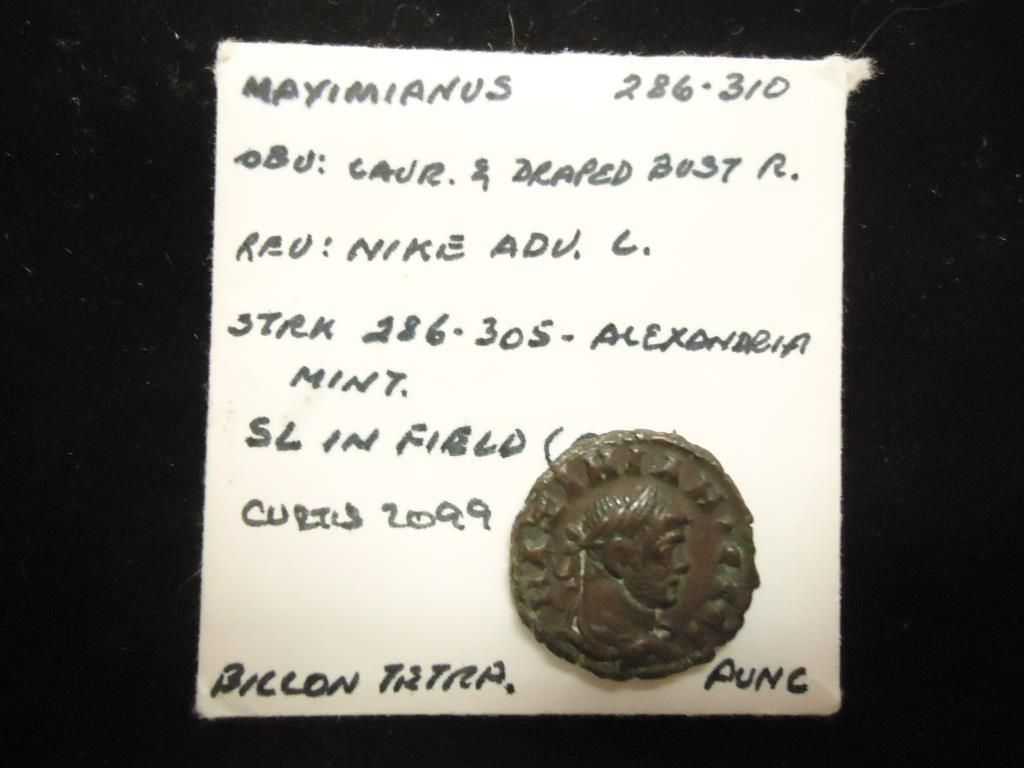 MAXIMIANUS 286-310
OBV: LAUR. & DRAPED BUST R.
REV: NIKE ADV. L.
STRK 286-305 - ALEXANDRIA
MINT.
SL IN FIELD (
CURTIS 2099
BILLON TETRA. AUNC